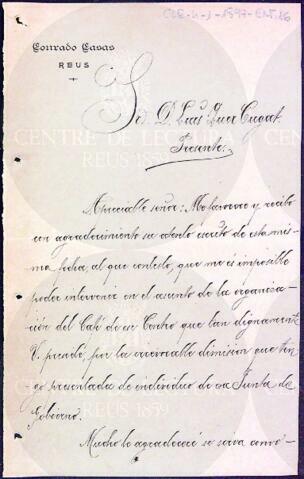 CLE-4-J-1897-ENT.16
Conrado Casas
REUS
Sr. D. Luis Quer Cugat
Presente
Apreciable señor: Me honro y recibo
con agradecimiento su atento escrito de esta mis-
ma fecha, al que contesto, que me es imposible
poder intervenir en el asunto de la organisa-
ción del Café de ese Centro que tan dignamente
V. preside, por la irrevocable dimisión que ten-
go presentada de individuo de esa Junta de
Gobierno.
Mucho lo agradeceré se sirva anró-
CENTRE DE LECTURA
REUS 1859